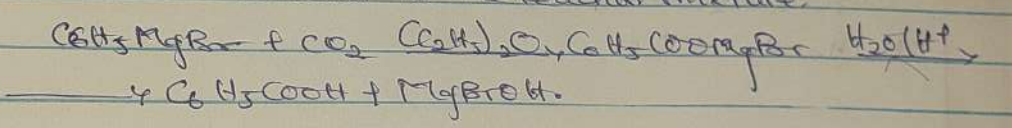 C6H5MgBr + CO2 (C2H5)2O→ C6H5COOMgBr H2O/H+→
→ C6H5COOH + MgBrOH.